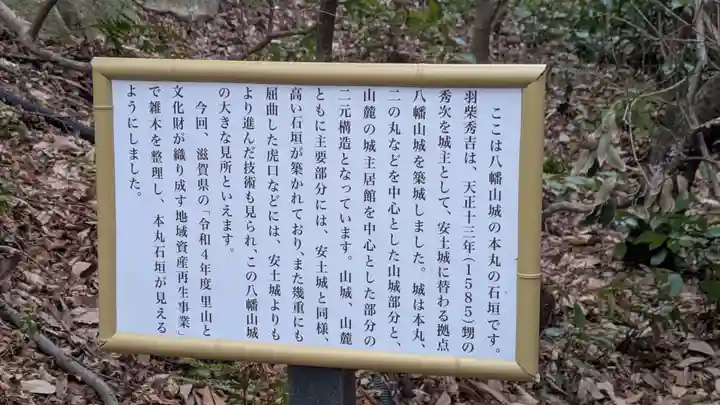 ここは八幡山城の本丸の石垣です。
羽柴秀吉は、天正十三年(1585)甥の
秀次を城主として、安土城に替わる拠点
八幡山城を築城しました。城は本丸、
二の丸などを中心とした山城部分と、
山麓の城主居館を中心とした部分の
二元構造となっています。山城、山麓
ともに主要部分には、安土城と同様、
高い石垣が築かれており、また幾重にも
屈曲した虎口などには、安土城よりも
より進んだ技術も見られ、この八幡山城
の大きな見所といえます。
今回、滋賀県の「令和4年度里山と
文化財が織り成す地域資産再生事業」
で雑木を整理し、本丸石垣が見える
ようにしました。